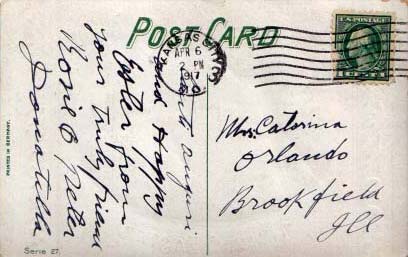 POST CARD
KANSAS CITY, MO
APR 6
2 PM
1917
U.S. POSTAGE
Mrs. Caterina
Orlando
Brookfield
Ill
auguri
and Happy
Ester from
your truly friend
Rosie & Peter
Donatella
PRINTED IN GERMANY.
Serie 27.